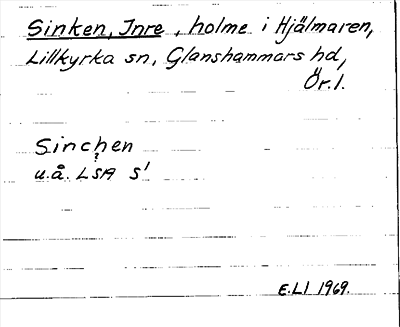 Sinken, Inre, holme i Hjälmaren,
Lillkyrka sn, Glanshammars hd,
Ör. l.
Sinchen
?
u.å. LSA S'
E.LI 1969.